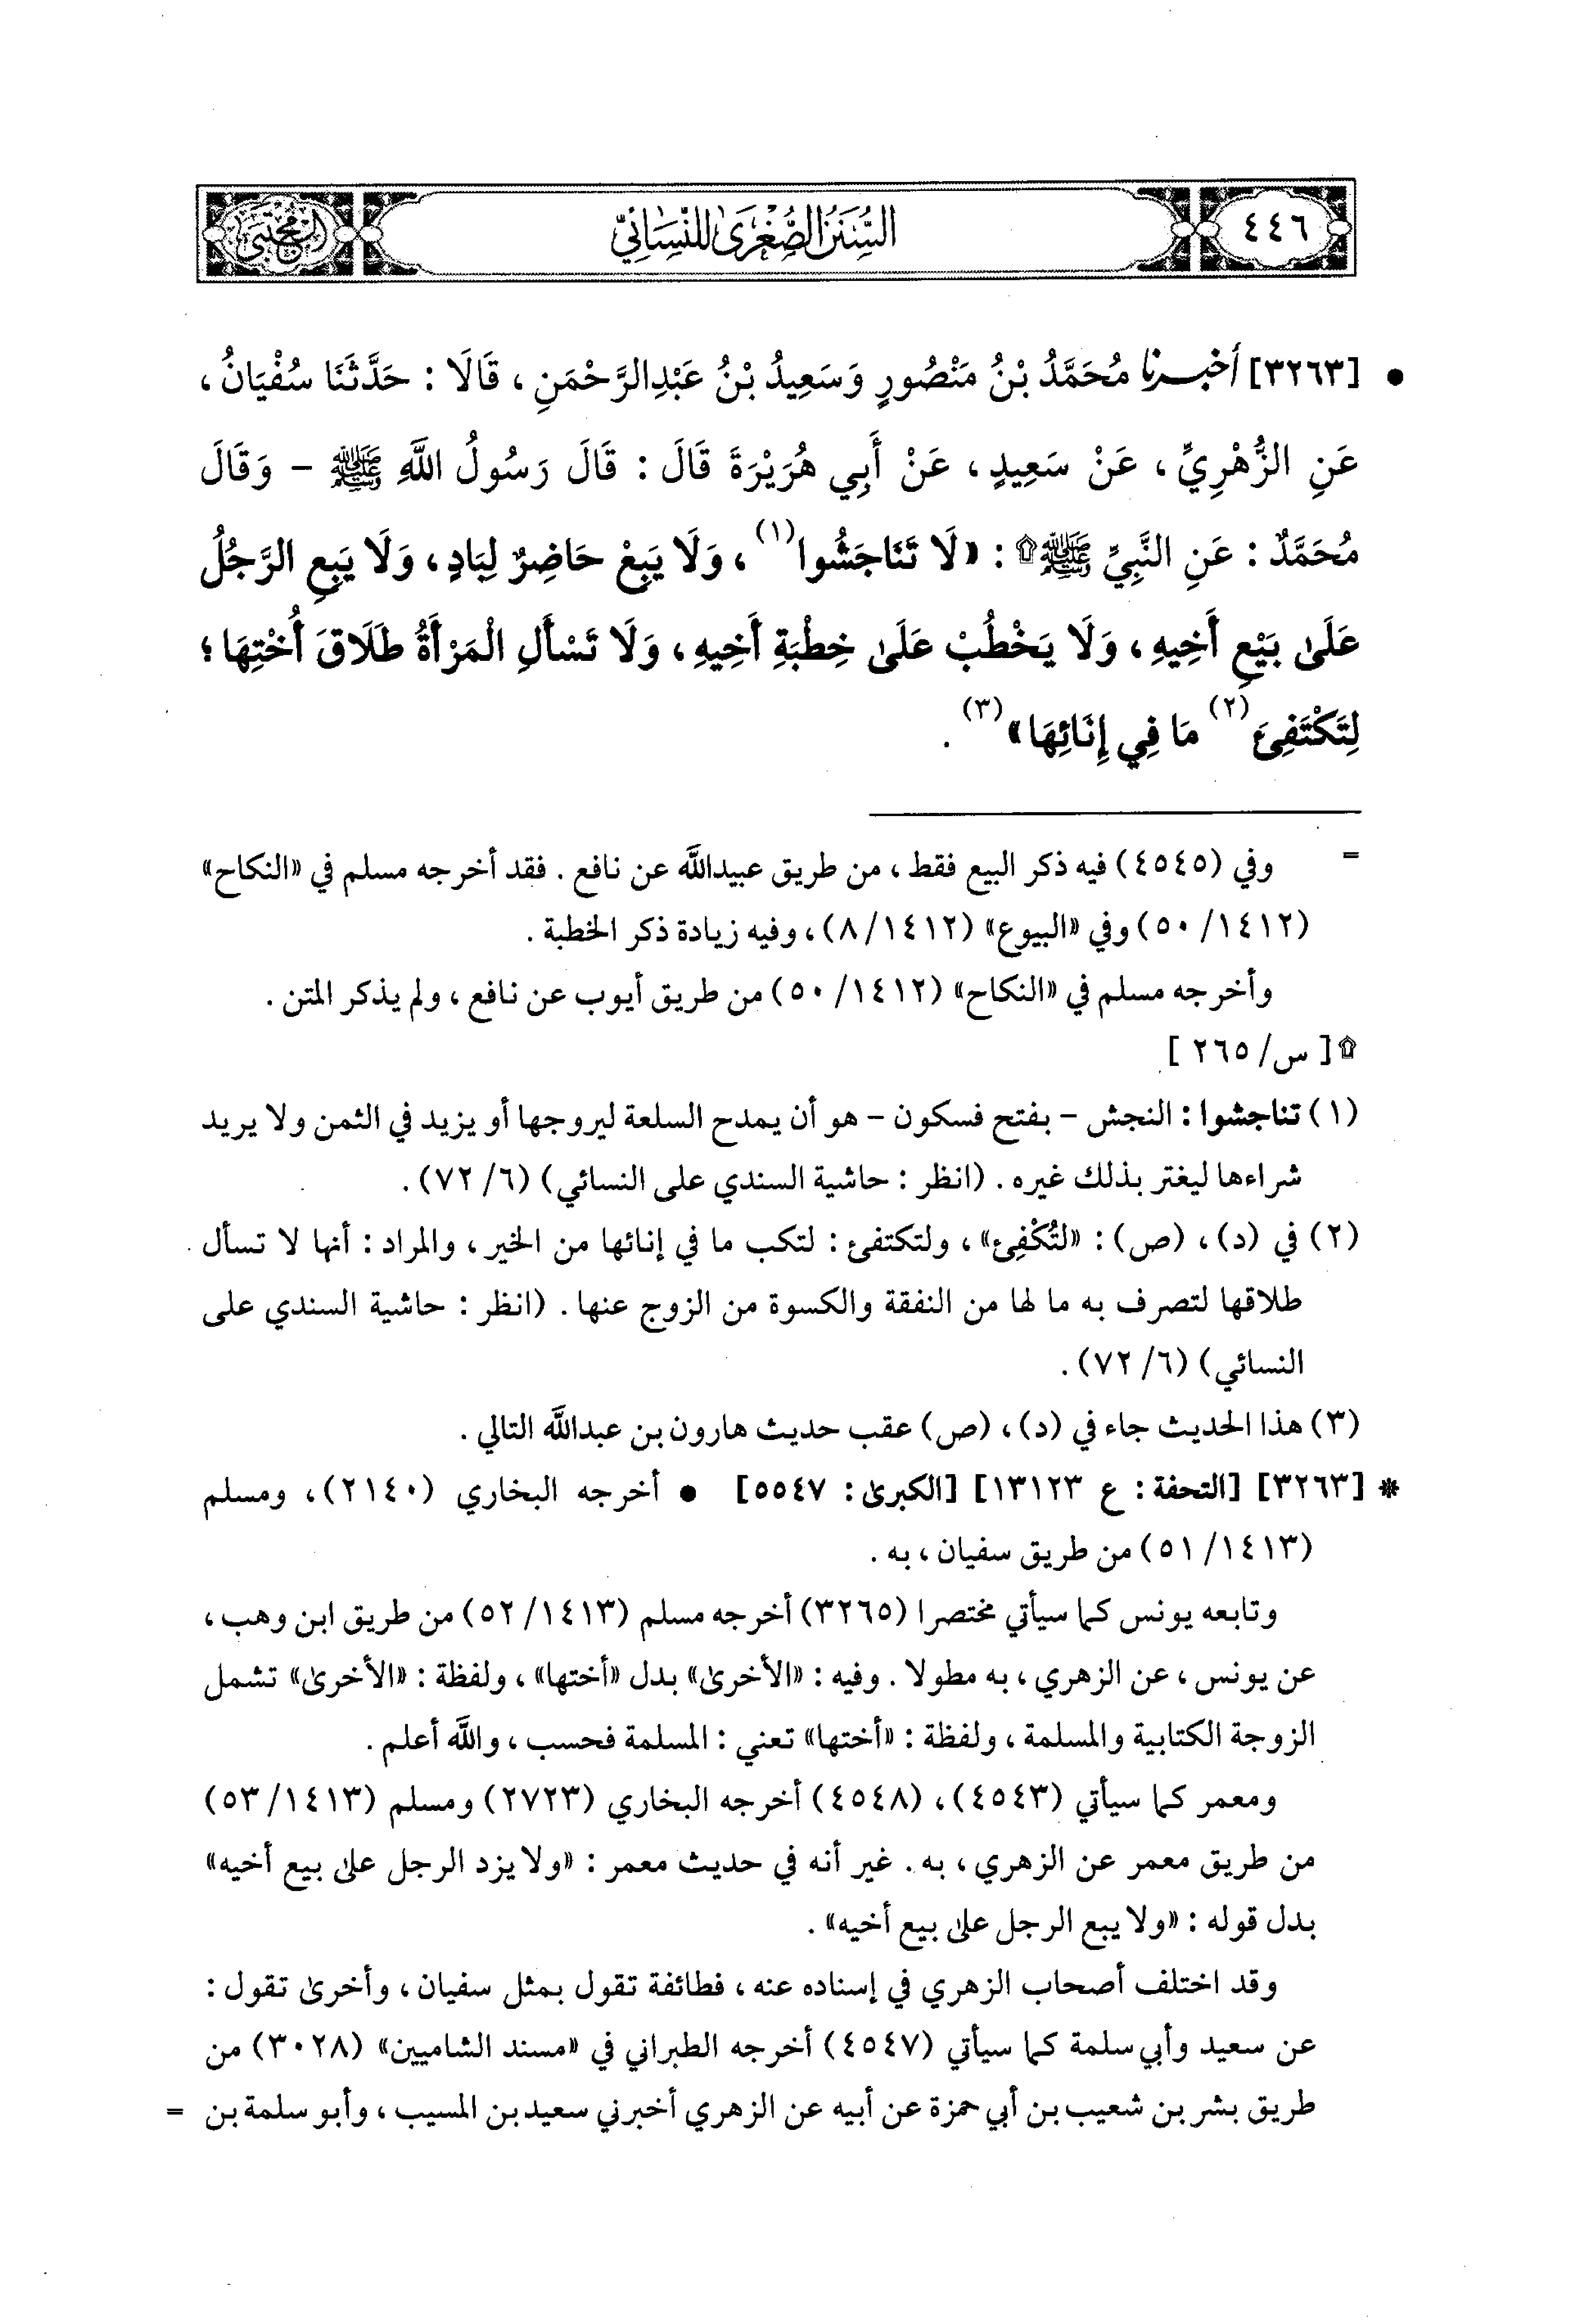 ٤٤٦
السُّنَنُ الصُّغْرَىٰ لِلنَّسَائِيِّ
المجتبى
• [٣٢٦٣] أَخْبَرَنَا مُحَمَّدُ بْنُ مَنْصُورٍ وَسَعِيدُ بْنُ عَبْدِالرَّحْمَنِ، قَالَا: حَدَّثَنَا سُفْيَانُ،
عَنِ الزُّهْرِيِّ، عَنْ سَعِيدٍ، عَنْ أَبِي هُرَيْرَةَ قَالَ: قَالَ رَسُولُ اللَّهِ ﷺ - وَقَالَ
مُحَمَّدٌ: عَنِ النَّبِيِّ ﷺ۩: «لَا تَنَاجَشُوا(١)، وَلَا يَبِعْ حَاضِرٌ لِبَادٍ، وَلَا يَبِعِ الرَّجُلُ
عَلَىٰ بَيْعِ أَخِيهِ، وَلَا يَخْطُبْ عَلَىٰ خِطْبَةِ أَخِيهِ، وَلَا تَسْأَلِ الْمَرْأَةُ طَلَاقَ أُخْتِهَا؛
لِتَكْتَفِئَ(٢) مَا فِي إِنَائِهَا»(٣).
= وفي (٤٥٤٥) فيه ذكر البيع فقط، من طريق عبيداللَّه عن نافع. فقد أخرجه مسلم في «النكاح»
(١٤١٢/ ٥٠) وفي «البيوع» (١٤١٢/ ٨)، وفيه زيادة ذكر الخطبة.
وأخرجه مسلم في «النكاح» (١٤١٢/ ٥٠) من طريق أيوب عن نافع، ولم يذكر المتن.
۩ [ س/ ٢٦٥ ]
(١) تناجشوا: النجش - بفتح فسكون - هو أن يمدح السلعة ليروجها أو يزيد في الثمن ولا يريد
شراءها ليغتر بذلك غيره. (انظر: حاشية السندي على النسائي) (٦/ ٧٢).
(٢) في (د)، (ص): «لتُكْفِئ»، ولتكتفئ: لتكب ما في إنائها من الخير، والمراد: أنها لا تسأل
طلاقها لتصرف به ما لها من النفقة والكسوة من الزوج عنها. (انظر: حاشية السندي على
النسائي) (٦/ ٧٢).
(٣) هذا الحديث جاء في (د)، (ص) عقب حديث هارون بن عبداللَّه التالي.
* [٣٢٦٣] [التحفة: ع ١٣١٢٣] [الكبرىٰ: ٥٥٤٧] • أخرجه البخاري (٢١٤٠)، ومسلم
(١٤١٣/ ٥١) من طريق سفيان، به.
وتابعه يونس كما سيأتي مختصرا (٣٢٦٥) أخرجه مسلم (١٤١٣/ ٥٢) من طريق ابن وهب،
عن يونس، عن الزهري، به مطولا. وفيه: «الأخرىٰ» بدل «أختها»، ولفظة: «الأخرىٰ» تشمل
الزوجة الكتابية والمسلمة، ولفظة: «أختها» تعني: المسلمة فحسب، واللَّه أعلم.
ومعمر كما سيأتي (٤٥٤٣)، (٤٥٤٨) أخرجه البخاري (٢٧٢٣) ومسلم (١٤١٣/ ٥٣)
من طريق معمر عن الزهري، به. غير أنه في حديث معمر: «ولا يزد الرجل علىٰ بيع أخيه»
بدل قوله: «ولا يبع الرجل علىٰ بيع أخيه».
وقد اختلف أصحاب الزهري في إسناده عنه، فطائفة تقول بمثل سفيان، وأخرىٰ تقول:
عن سعيد وأبي سلمة كما سيأتي (٤٥٤٧) أخرجه الطبراني في «مسند الشاميين» (٣٠٢٨) من
طريق بشر بن شعيب بن أبي حمزة عن أبيه عن الزهري أخبرني سعيد بن المسيب، وأبو سلمة بن =